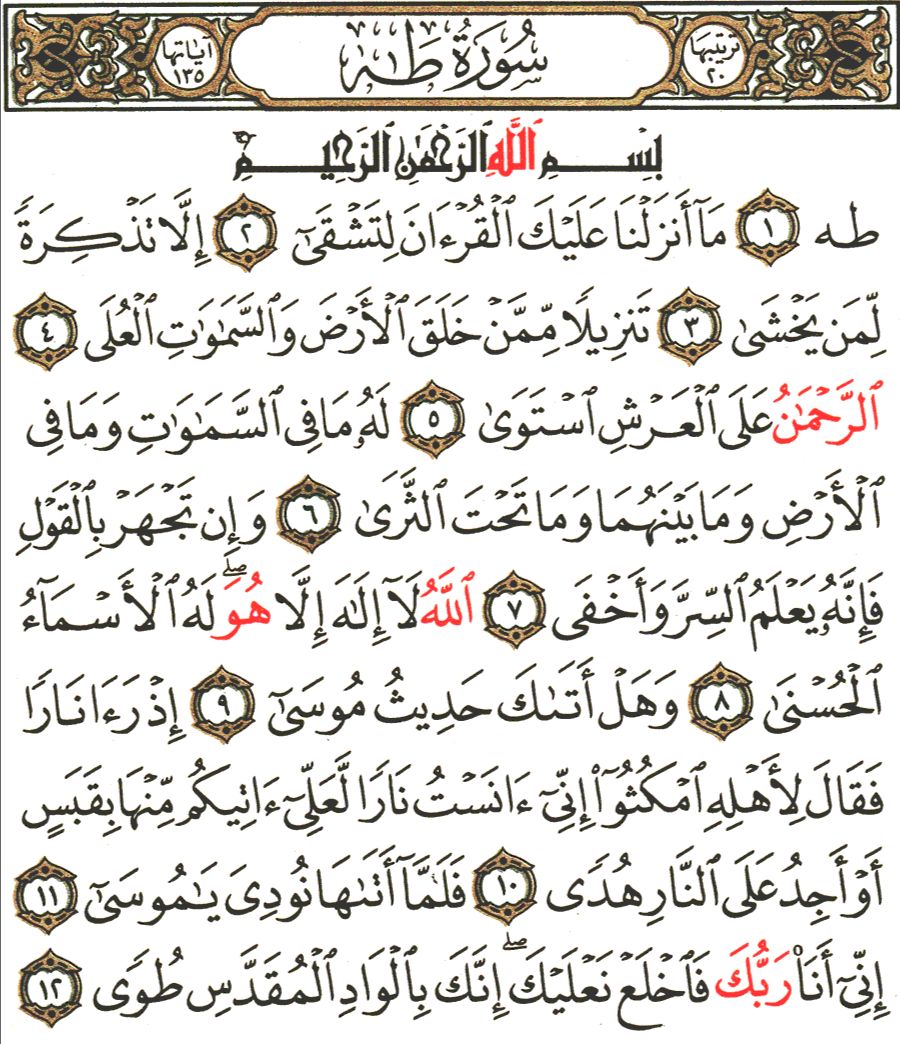 ترتيبها ٢٠ سُورَةُ طه آياتها ١٣٥
بِسْمِ ٱللَّهِ ٱلرَّحْمَٰنِ ٱلرَّحِيمِ
طه ١ مَآ أَنزَلْنَا عَلَيْكَ ٱلْقُرْءَانَ لِتَشْقَىٰٓ ٢ إِلَّا تَذْكِرَةً
لِّمَن يَخْشَىٰ ٣ تَنزِيلًا مِّمَّنْ خَلَقَ ٱلْأَرْضَ وَٱلسَّمَٰوَٰتِ ٱلْعُلَى ٤
ٱلرَّحْمَٰنُ عَلَى ٱلْعَرْشِ ٱسْتَوَىٰ ٥ لَهُۥ مَا فِى ٱلسَّمَٰوَٰتِ وَمَا فِى
ٱلْأَرْضِ وَمَا بَيْنَهُمَا وَمَا تَحْتَ ٱلثَّرَىٰ ٦ وَإِن تَجْهَرْ بِٱلْقَوْلِ
فَإِنَّهُۥ يَعْلَمُ ٱلسِّرَّ وَأَخْفَى ٧ ٱللَّهُ لَآ إِلَٰهَ إِلَّا هُوَۖ لَهُ ٱلْأَسْمَآءُ
ٱلْحُسْنَىٰ ٨ وَهَلْ أَتَىٰكَ حَدِيثُ مُوسَىٰٓ ٩ إِذْ رَءَا نَارًا
فَقَالَ لِأَهْلِهِ ٱمْكُثُوٓا۟ إِنِّىٓ ءَانَسْتُ نَارًا لَّعَلِّىٓ ءَاتِيكُم مِّنْهَا بِقَبَسٍ
أَوْ أَجِدُ عَلَى ٱلنَّارِ هُدًى ١٠ فَلَمَّآ أَتَىٰهَا نُودِىَ يَٰمُوسَىٰٓ ١١
إِنِّىٓ أَنَا۠ رَبُّكَ فَٱخْلَعْ نَعْلَيْكَۖ إِنَّكَ بِٱلْوَادِ ٱلْمُقَدَّسِ طُوًى ١٢